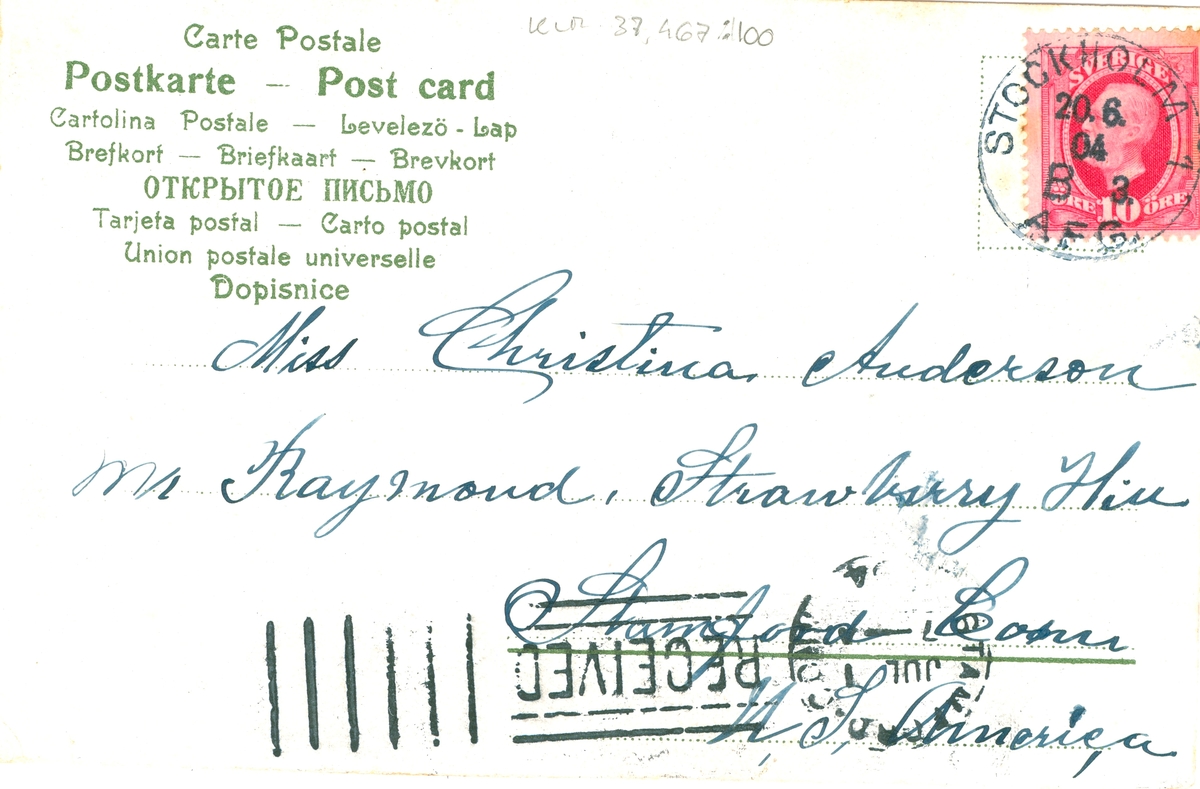 Kur. 37,467:100
Carte Postale
Postkarte — Post card
Cartolina Postale — Levelezö - Lap
Brefkort — Briefkaart — Brevkort
ОТКРЫТОЕ ПИСЬМО
Tarjeta postal — Carto postal
Union postale universelle
Dopisnice
SVERIGE
10
ÖRE ÖRE
STOCKHOLM 1
20. 6.
04
3.
AFG.
Miss Christina Anderson
Mr Raymond, Strawberry Hill
Stamford Conn
U, S, America
RECEIVED
JUL 1